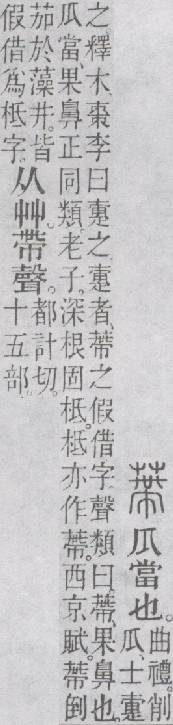 蔕瓜當也。曲禮。削
瓜、士疐
之釋木。棗李曰疐之。疐者、蔕之假借字。聲類曰。蔕、果鼻也。
瓜當、果鼻正同類。老子。深根固柢。柢亦作蔕。西京賦。蔕倒
茄於藻井。皆
假借爲柢字。
从艸。帶聲。都計切。
十五部。